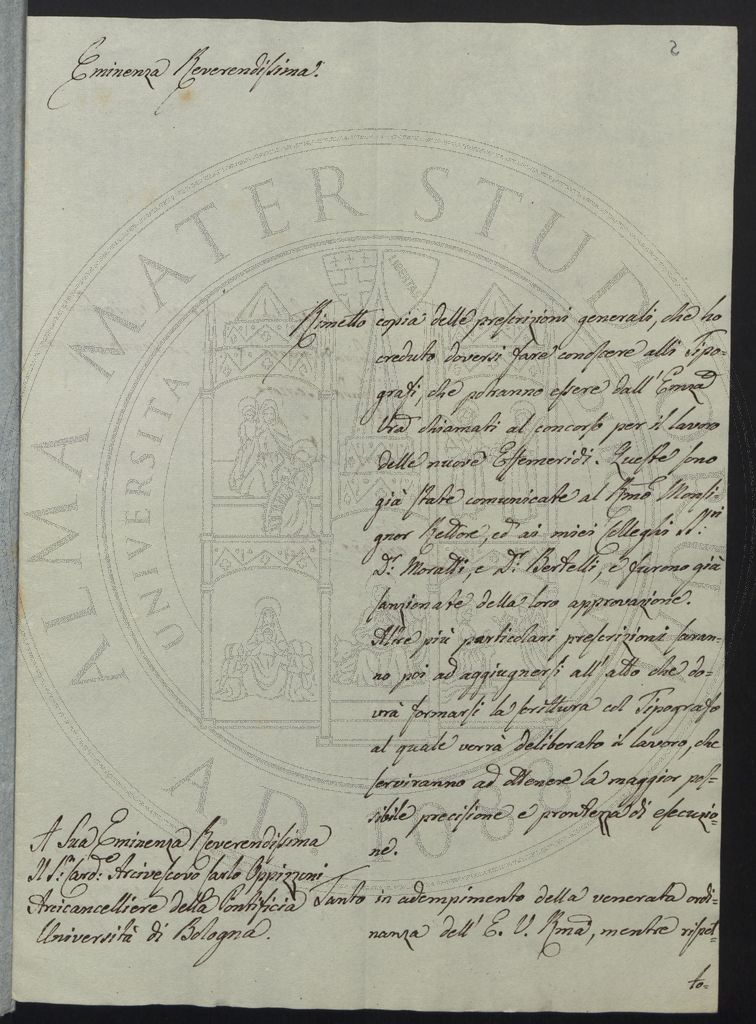 2
Eminenza Reverendissima.
Rimetto copia delle prescrizioni generali, che ho
creduto doversi fare conoscere alli Tipo=
grafi che potranno essere dall' Emza
Vra chiamati al concorso per il lavoro
delle nuove Effemeridi. Queste sono
già state comunicate al Rmo Monsi=
gnor Rettore, ed ai miei Colleghi S.ri
Dr. Moratti, e Dr. Bertelli, e furono già
sanzionate della loro approvazione.
Altre più particolari prescrizioni saran=
no poi ad aggiugnersi all' atto che do=
vrà formarsi la scrittura col Tipografo
al quale verrà deliberato il lavoro, che
serviranno ad ottenere la maggior pos=
sibile precisione e prontezza di esecuzio=
ne.
Tanto in adempimento della venerata ordi=
nanza dell' E. V. Rma, mentre rispet=
to=
A Sua Eminenza Reverendissima
Il Sr. Card. Arcivescovo Carlo Oppizzoni
Arcicancelliere della Pontificia
Università di Bologna.
ALMA MATER STUDIORUM
UNIVERSITA
LIBERTAS
A.D. 1088